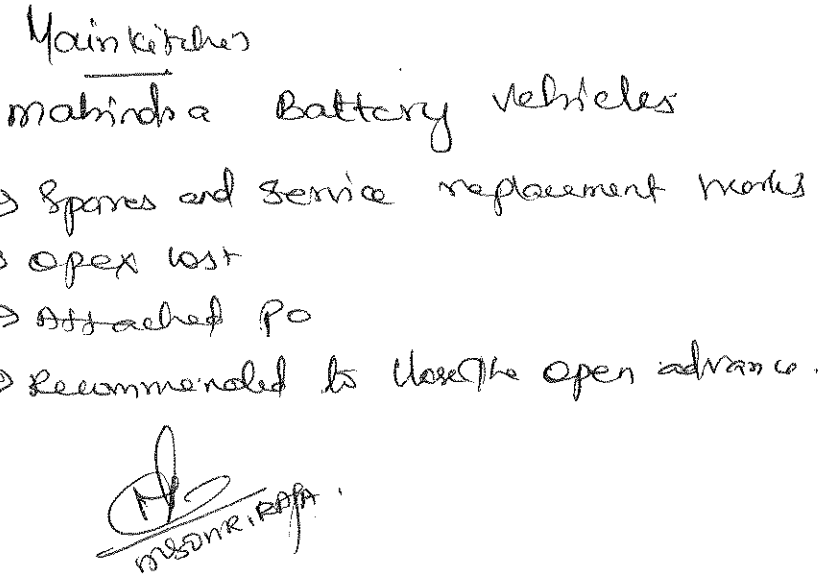 Main kitchen
mahindra Battery vehicles
→ Spares and Service replacement works
→ opex cost
→ Attached PO
→ Recommended to close the open advance.